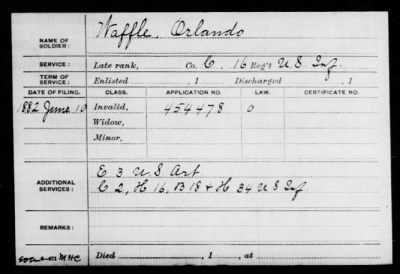 NAME OF SOLDIER: Waffle, Orlando
SERVICE: Late rank, Co. C, 16 Reg't U.S. Inf.
TERM OF SERVICE: Enlisted , 1 Discharged , 1
DATE OF FILING. CLASS. APPLICATION NO. LAW. CERTIFICATE NO.
1882 June 10 Invalid, 454478 0
Widow,
Minor,
ADDITIONAL SERVICES: E 3 U S Art
C 2, H 16, B 18 & H 34 U S Inf
REMARKS:
Died , 1 , at